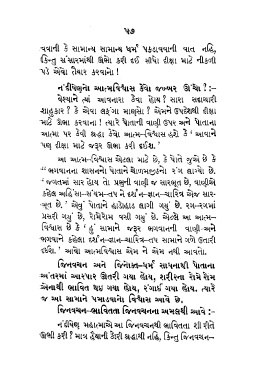 ૫૭
વવાની કે સામાન્ય સામાન્ય ધર્મ પકડાવવાની વાત નહિ,
કિન્તુ સંસારમાંથી ઊભા કરી દઈ સીધા દીક્ષા માટે નીકળી
પડે એવા તૈયાર કરવાના !
નંદીષેણનો આત્મવિશ્વાસ કેવો જબ્બર ઊંચો ? :
વેશ્યાને ત્યાં આવનારા કેવા હોય ? સારા સદાચારી
શાહુકાર ? કે એવા લફંગા માણસો ? એમને ઉપદેશથી દીક્ષા
માટે ઊભા કરવાના ! ત્યારે પોતાની વાણી ઉપર અને પોતાના
આત્મા પર કેવી શ્રદ્ધા કેવો આત્મ-વિશ્વાસ હશે કે ' આવાને
પણ દીક્ષા માટે જરૂર ઊભા કરી દઈશ.'
આ આત્મ-વિશ્વાસ એટલા માટે છે, કે પોતે જુએ છે કે
" ભગવાનના શાસનનો પોતાને ચોળમજીઠનો રંગ લાગ્યો છે.
" જગતમાં સાર હોય તો પ્રભુની વાણી જ સારભૂત છે, વાણીએ
કહેલ અહિંસા-સંયમ-તપ ને દર્શન-જ્ઞાન-ચારિત્ર એજ સાર-
ભૂત છે,' એવું પોતાને હાડોહાડ લાગી ગયું છે. રગ-રગમાં
પ્રસરી ગયું છે, રોમેરોમ વસી ગયું છે. એટલે આ આત્મ-
વિશ્વાસ છે કે ' હું સામાને જરૂર ભગવાનની વાણી અને
ભગવાને કહેલા દર્શન-જ્ઞાન-ચારિત્ર-તપ સામાને ગળે ઉતારી
દઈશ. ' આવો આત્મવિશ્વાસ એમ ને એમ નથી આવતો.
જિનવચન અને જિનોક્ત-ધર્મ સાધનાથી પોતાના
અંતરમાં આરપાર ઊતરી ગયા હોય, શરીરના રોમેરોમ
એનાથી ભાવિત થઈ ગયા હોય, રંગાઈ ગયા હોય, ત્યારે
જ આ સામાને પમાડવાનો વિશ્વાસ આવે છે.
જિનવચન-ભાવિતતા જિનવચનના અમલથી આવે :-
નંદીષેણ મહાત્માએ આ જિનવચનથી ભાવિતતા શી રીતે
ઊભી કરી ? માત્ર હૈયાની કોરી શ્રદ્ધાથી નહિ, કિન્તુ જિનવચન-